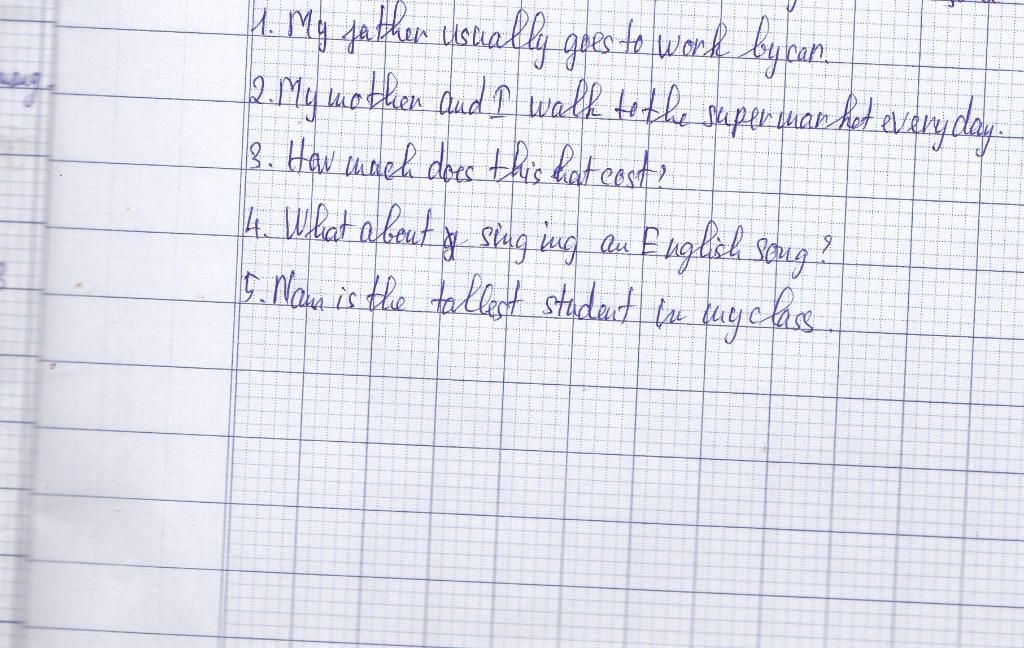 1. My father usually goes to work by car.
2. My mother and I walk to the supermarket everyday.
3. How much does this hat cost?
4. What about singing an English song?
5. Nam is the tallest student in my class.